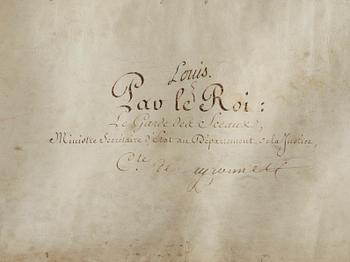 Louis.
Par le Roi:
Le Garde des Sceaux,
Ministre Secrétaire d'Etat au Département de la Justice,
Cte de Peyronnet